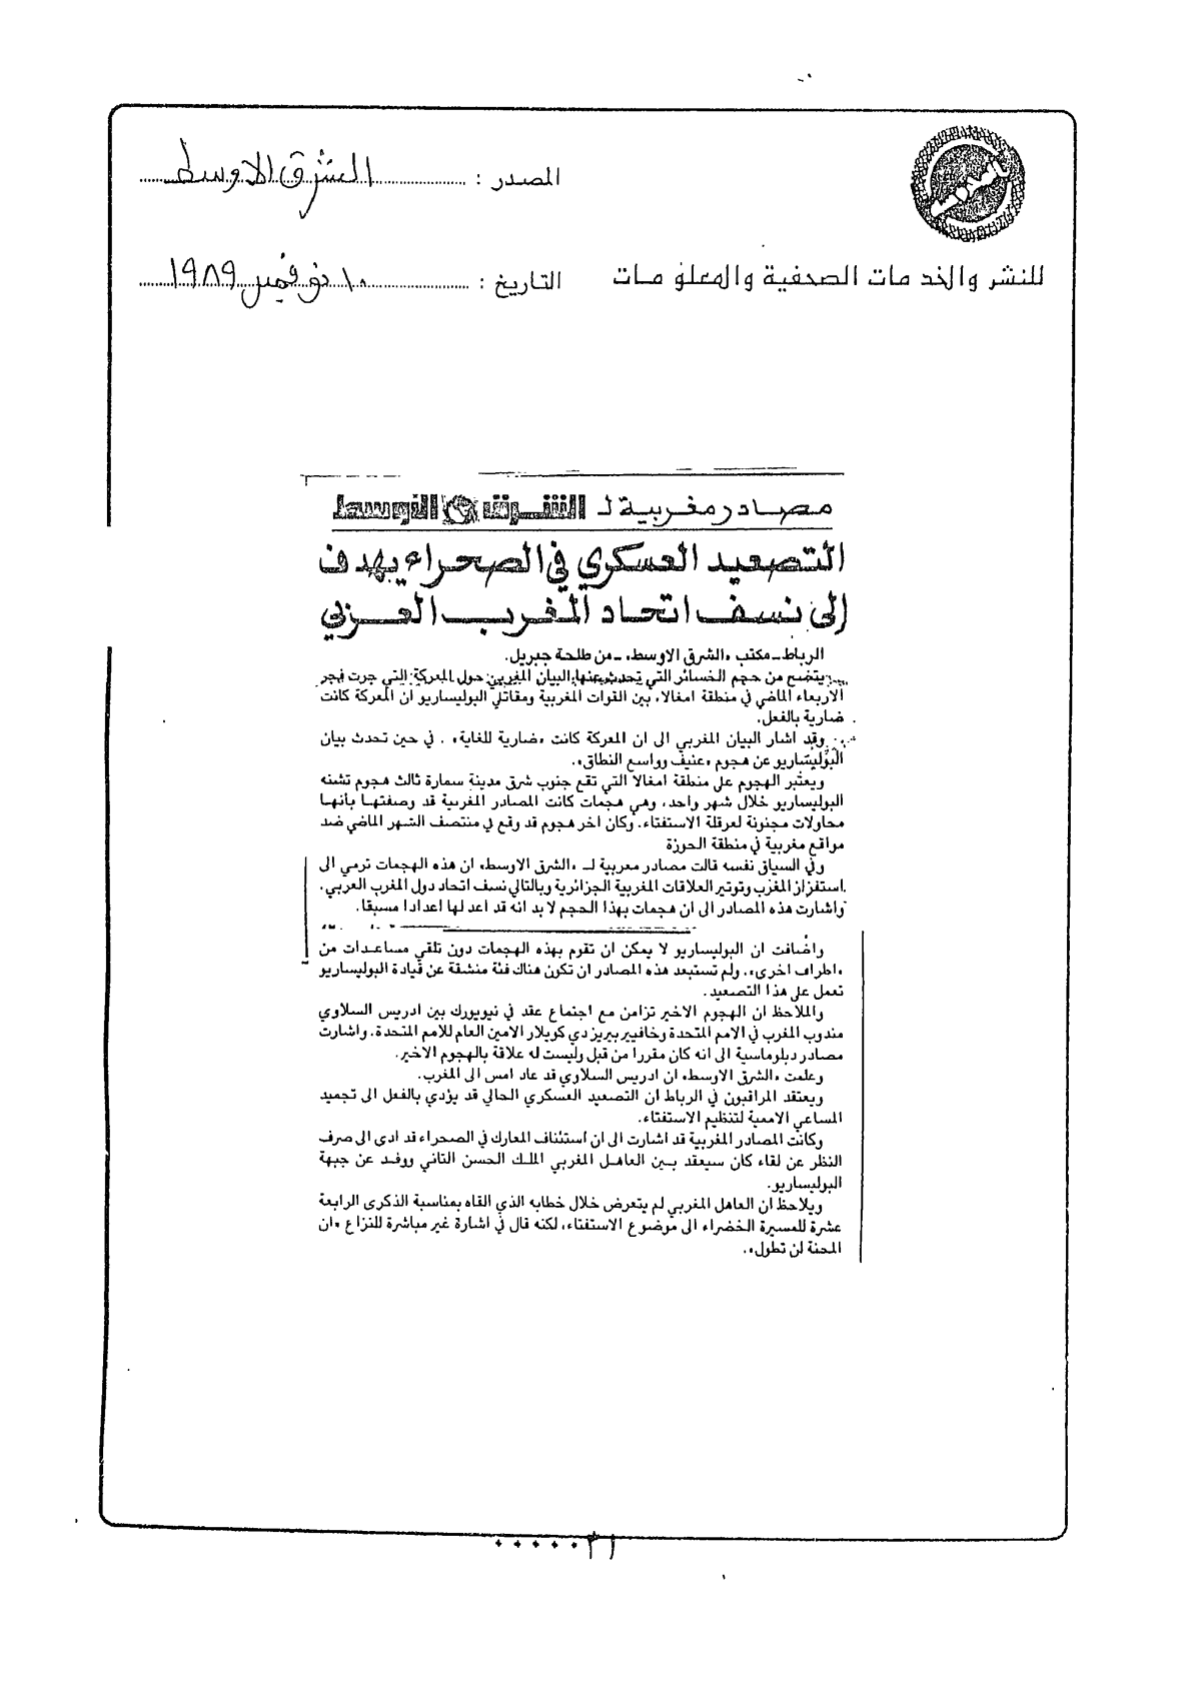 المصدر : الشرق الاوسط
للنشر والخدمات الصحفية والمعلومات
التاريخ : ١٠ نوفمبر ١٩٨٩
مصادر مغربية لـ الشرق الأوسط
التصعيد العسكري في الصحراء يهدف
إلى نسف اتحاد المغرب العربي
الرباط ـ مكتب «الشرق الاوسط» ـ من طلحة جبريل.
يتضح من حجم الخسائر التي تحدث عنها البيان المغربي حول المعركة التي جرت فجر
الاربعاء الماضي في منطقة امغالا، بين القوات المغربية ومقاتلي البوليساريو ان المعركة كانت
ضارية بالفعل.
وقد اشار البيان المغربي الى ان المعركة كانت «ضارية للغاية» . في حين تحدث بيان
البوليساريو عن هجوم «عنيف وواسع النطاق».
ويعتبر الهجوم على منطقة امغالا التي تقع جنوب شرق مدينة سمارة ثالث هجوم تشنه
البوليساريو خلال شهر واحد، وهي هجمات كانت المصادر المغربية قد وصفتها بأنها
محاولات مجنونة لعرقلة الاستفتاء. وكان اخر هجوم قد وقع في منتصف الشهر الماضي ضد
مواقع مغربية في منطقة الحوزة
وفي السياق نفسه قالت مصادر مغربية لـ «الشرق الاوسط» ان هذه الهجمات ترمي الى
استفزاز المغرب وتوتير العلاقات المغربية الجزائرية وبالتالي نسف اتحاد دول المغرب العربي.
واشارت هذه المصادر الى ان هجمات بهذا الحجم لا بد انه قد اعد لها اعدادا مسبقا.
واضافت ان البوليساريو لا يمكن ان تقوم بهذه الهجمات دون تلقي مساعدات من
«اطراف اخرى». ولم تستبعد هذه المصادر ان تكون هناك فئة منشقة عن قيادة البوليساريو
تعمل على هذا التصعيد.
والملاحظ ان الهجوم الاخير تزامن مع اجتماع عقد في نيويورك بين ادريس السلاوي
مندوب المغرب في الامم المتحدة وخافيير بيريز دي كويلار الامين العام للامم المتحدة. واشارت
مصادر دبلوماسية الى انه كان مقررا من قبل وليست له علاقة بالهجوم الاخير.
وعلمت «الشرق الاوسط» ان ادريس السلاوي قد عاد امس الى المغرب.
ويعتقد المراقبون في الرباط ان التصعيد العسكري الحالي قد يؤدي بالفعل الى تجميد
المساعي الاممية لتنظيم الاستفتاء.
وكانت المصادر المغربية قد اشارت الى ان استئناف المعارك في الصحراء قد ادى الى صرف
النظر عن لقاء كان سيعقد بين العاهل المغربي الملك الحسن الثاني ووفد عن جبهة
البوليساريو.
ويلاحظ ان العاهل المغربي لم يتعرض خلال خطابه الذي القاه بمناسبة الذكرى الرابعة
عشرة للمسيرة الخضراء الى موضوع الاستفتاء، لكنه قال في اشارة غير مباشرة للنزاع «ان
المحنة لن تطول».